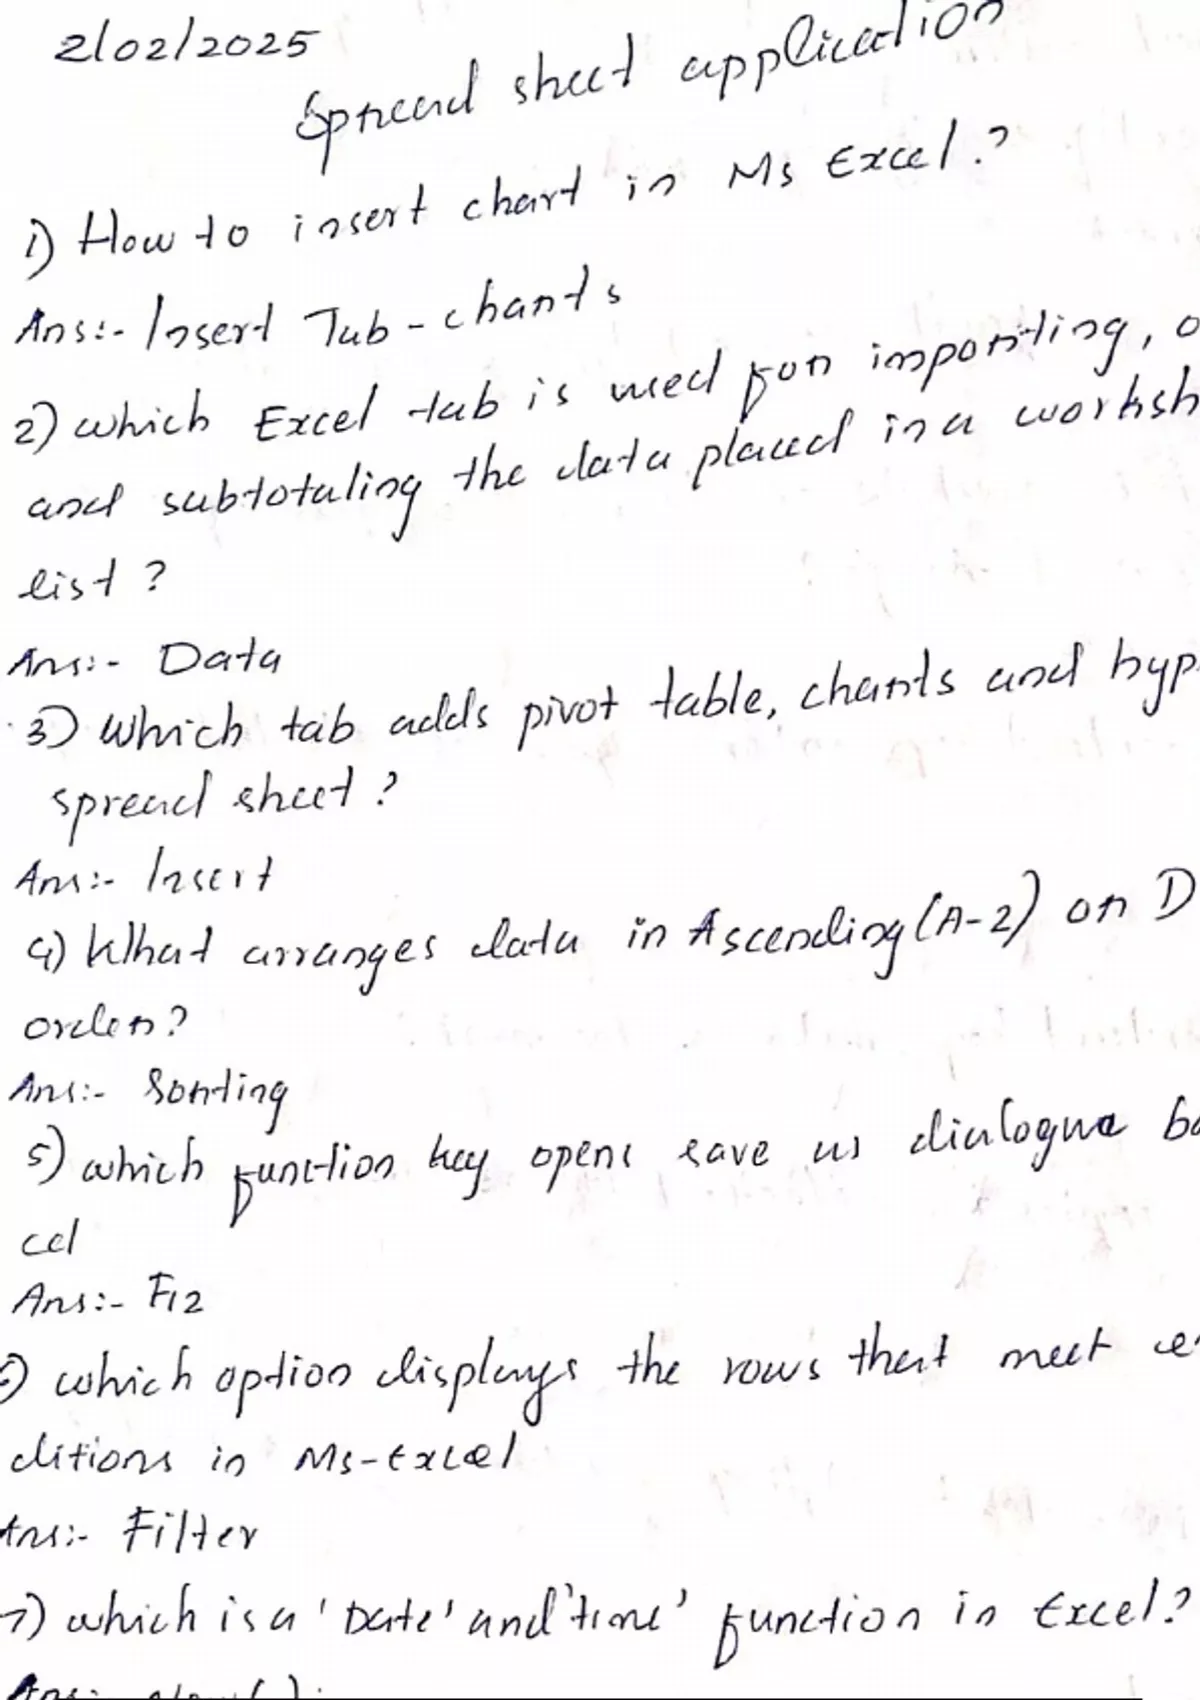 2/02/2025
Spread sheet application
1) How to insert chart in Ms Excel.?
Ans:- Insert Tab - charts
2) which Excel tab is used for importing,
and subtotaling the data placed in a worksh
list ?
Ans:- Data
3) Which tab adds pivot table, charts and hyp
spread sheet ?
Ans:- Insert
4) What arranges data in Ascending (A-Z) or D
order?
Ans:- Sorting
5) which function key opens save as dialogue bo
cel
Ans:- F12
6) which option displays the rows that meet ce
ditions in Ms-Excel
Ans:- Filter
7) which is a 'Date' and 'time' function in Excel?
Ans:- Now( ).